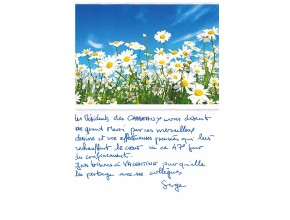 Les Résidents des CHARTREUX vous disent
un grand Merci pour ces merveilleux
dessins et vos affectueuses pensées qui leur
réchauffent le cœur en ce 47e jour
de confinement.
Gros bisous à VALENTINE pour qu'elle
les partage avec ses collègues
Serge